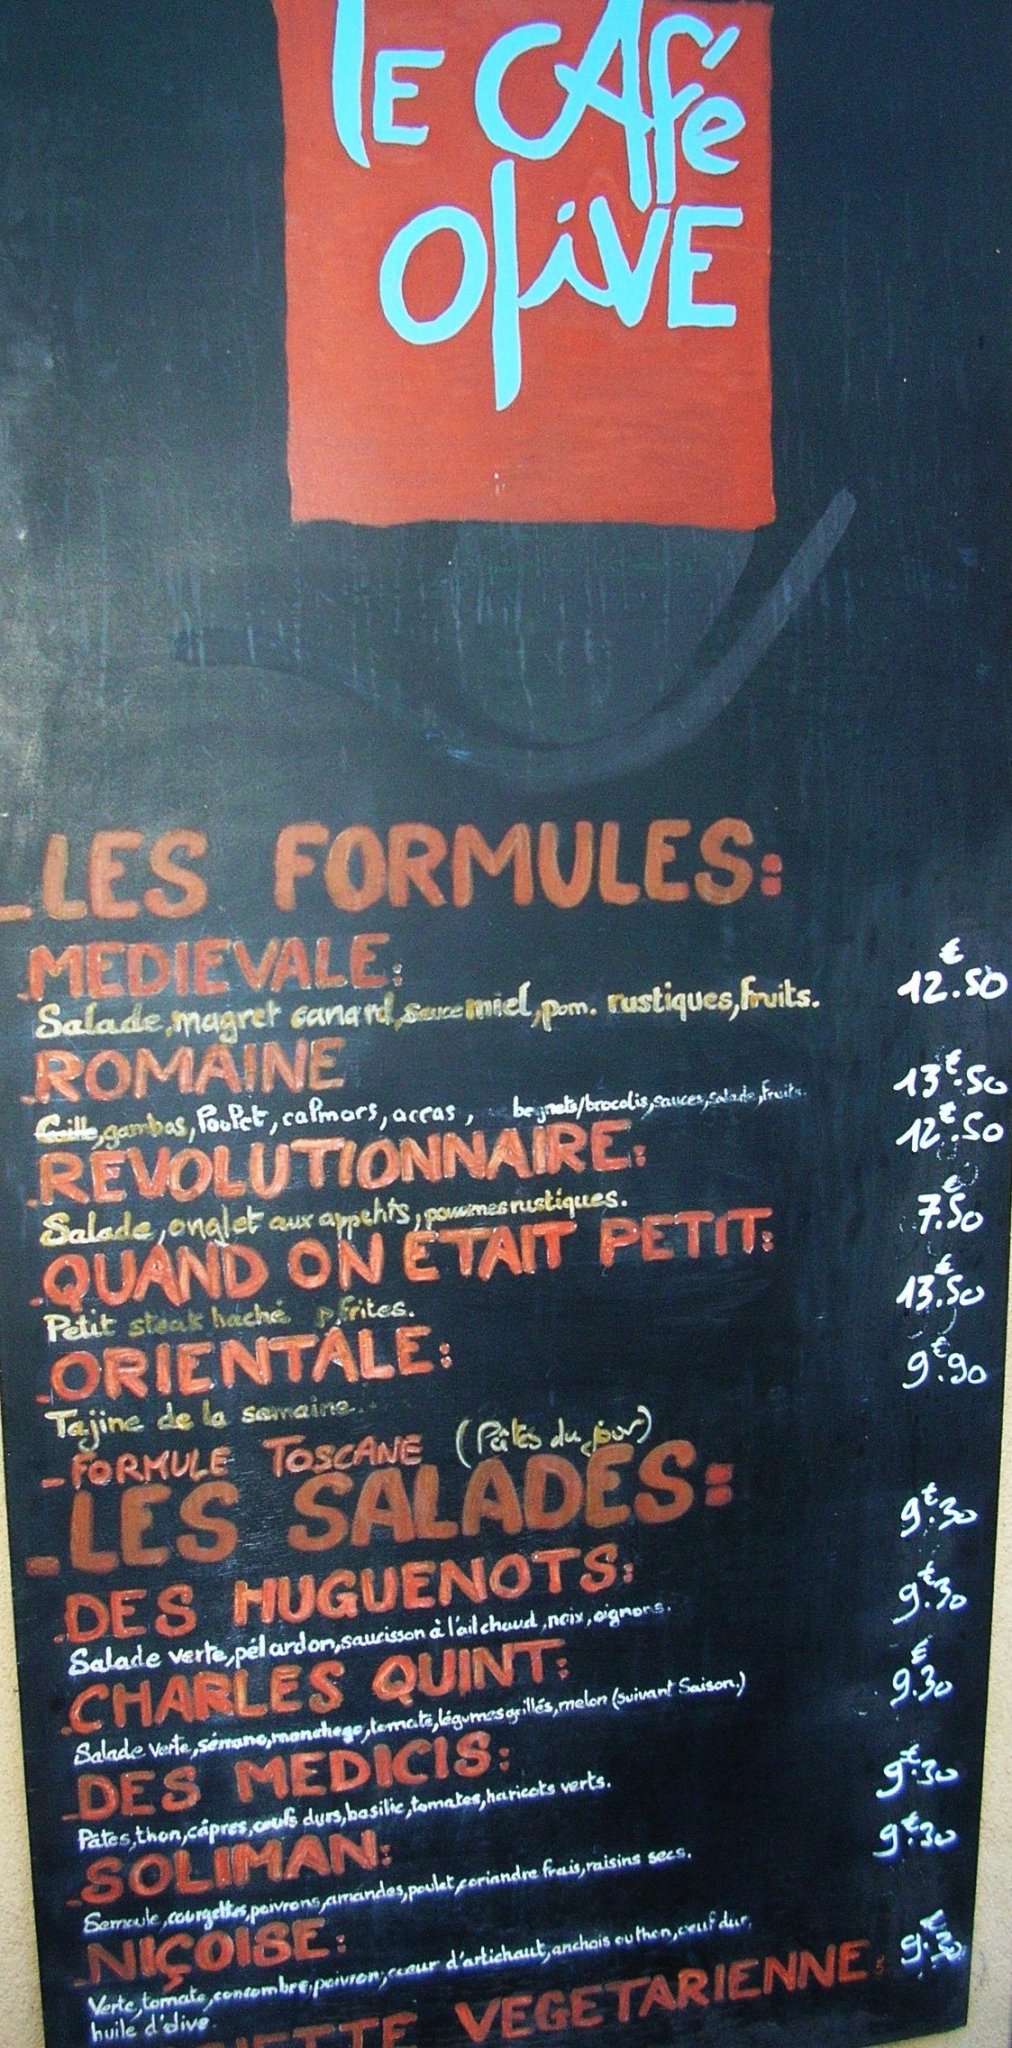 LE CAfé
OliVE
LES FORMULES:
€
MEDIEVALE: 12.50
Salade, magret canard, sauce miel, pom. rustiques, fruits.
ROMAINE 13€.50
gambas, Poulet, calmars, accras, beignets/brocolis, sauces, salade, fruits.
REVOLUTIONNAIRE: 12€.50
Salade, onglet aux appehts, pommes rustiques.
QUAND ON ÉTAIT PETIT: 7€.50
Petit steak haché p, frites.
ORIENTALE: 13€.50
Tajine de la semaine...
FORMULE TOSCANE (Pâtes du jour) 9€.90
LES SALADES:
DES HUGUENOTS: 9€.30
Salade verte, pélardon, saucisson à l'ail chaud, noix, oignons.
CHARLES QUINT: 9€.30
Salade verte, sérrano, manchego, tomate, légumes grillés, melon (suivant Saison.)
DES MEDICIS: 9€.30
Pâtes, thon, câpres, oeufs durs, basilic, tomates, haricots verts.
SOLIMAN: 9€.30
Semoule, courgettes, poivrons, amandes, poulet, coriandre frais, raisins secs.
NIÇOISE: 9€.30
Verte, tomate, concombre, poivron, coeur d'artichaut, anchois ou thon, oeuf dur,
huile d'olive.
VEGETARIENNE: 9€.30